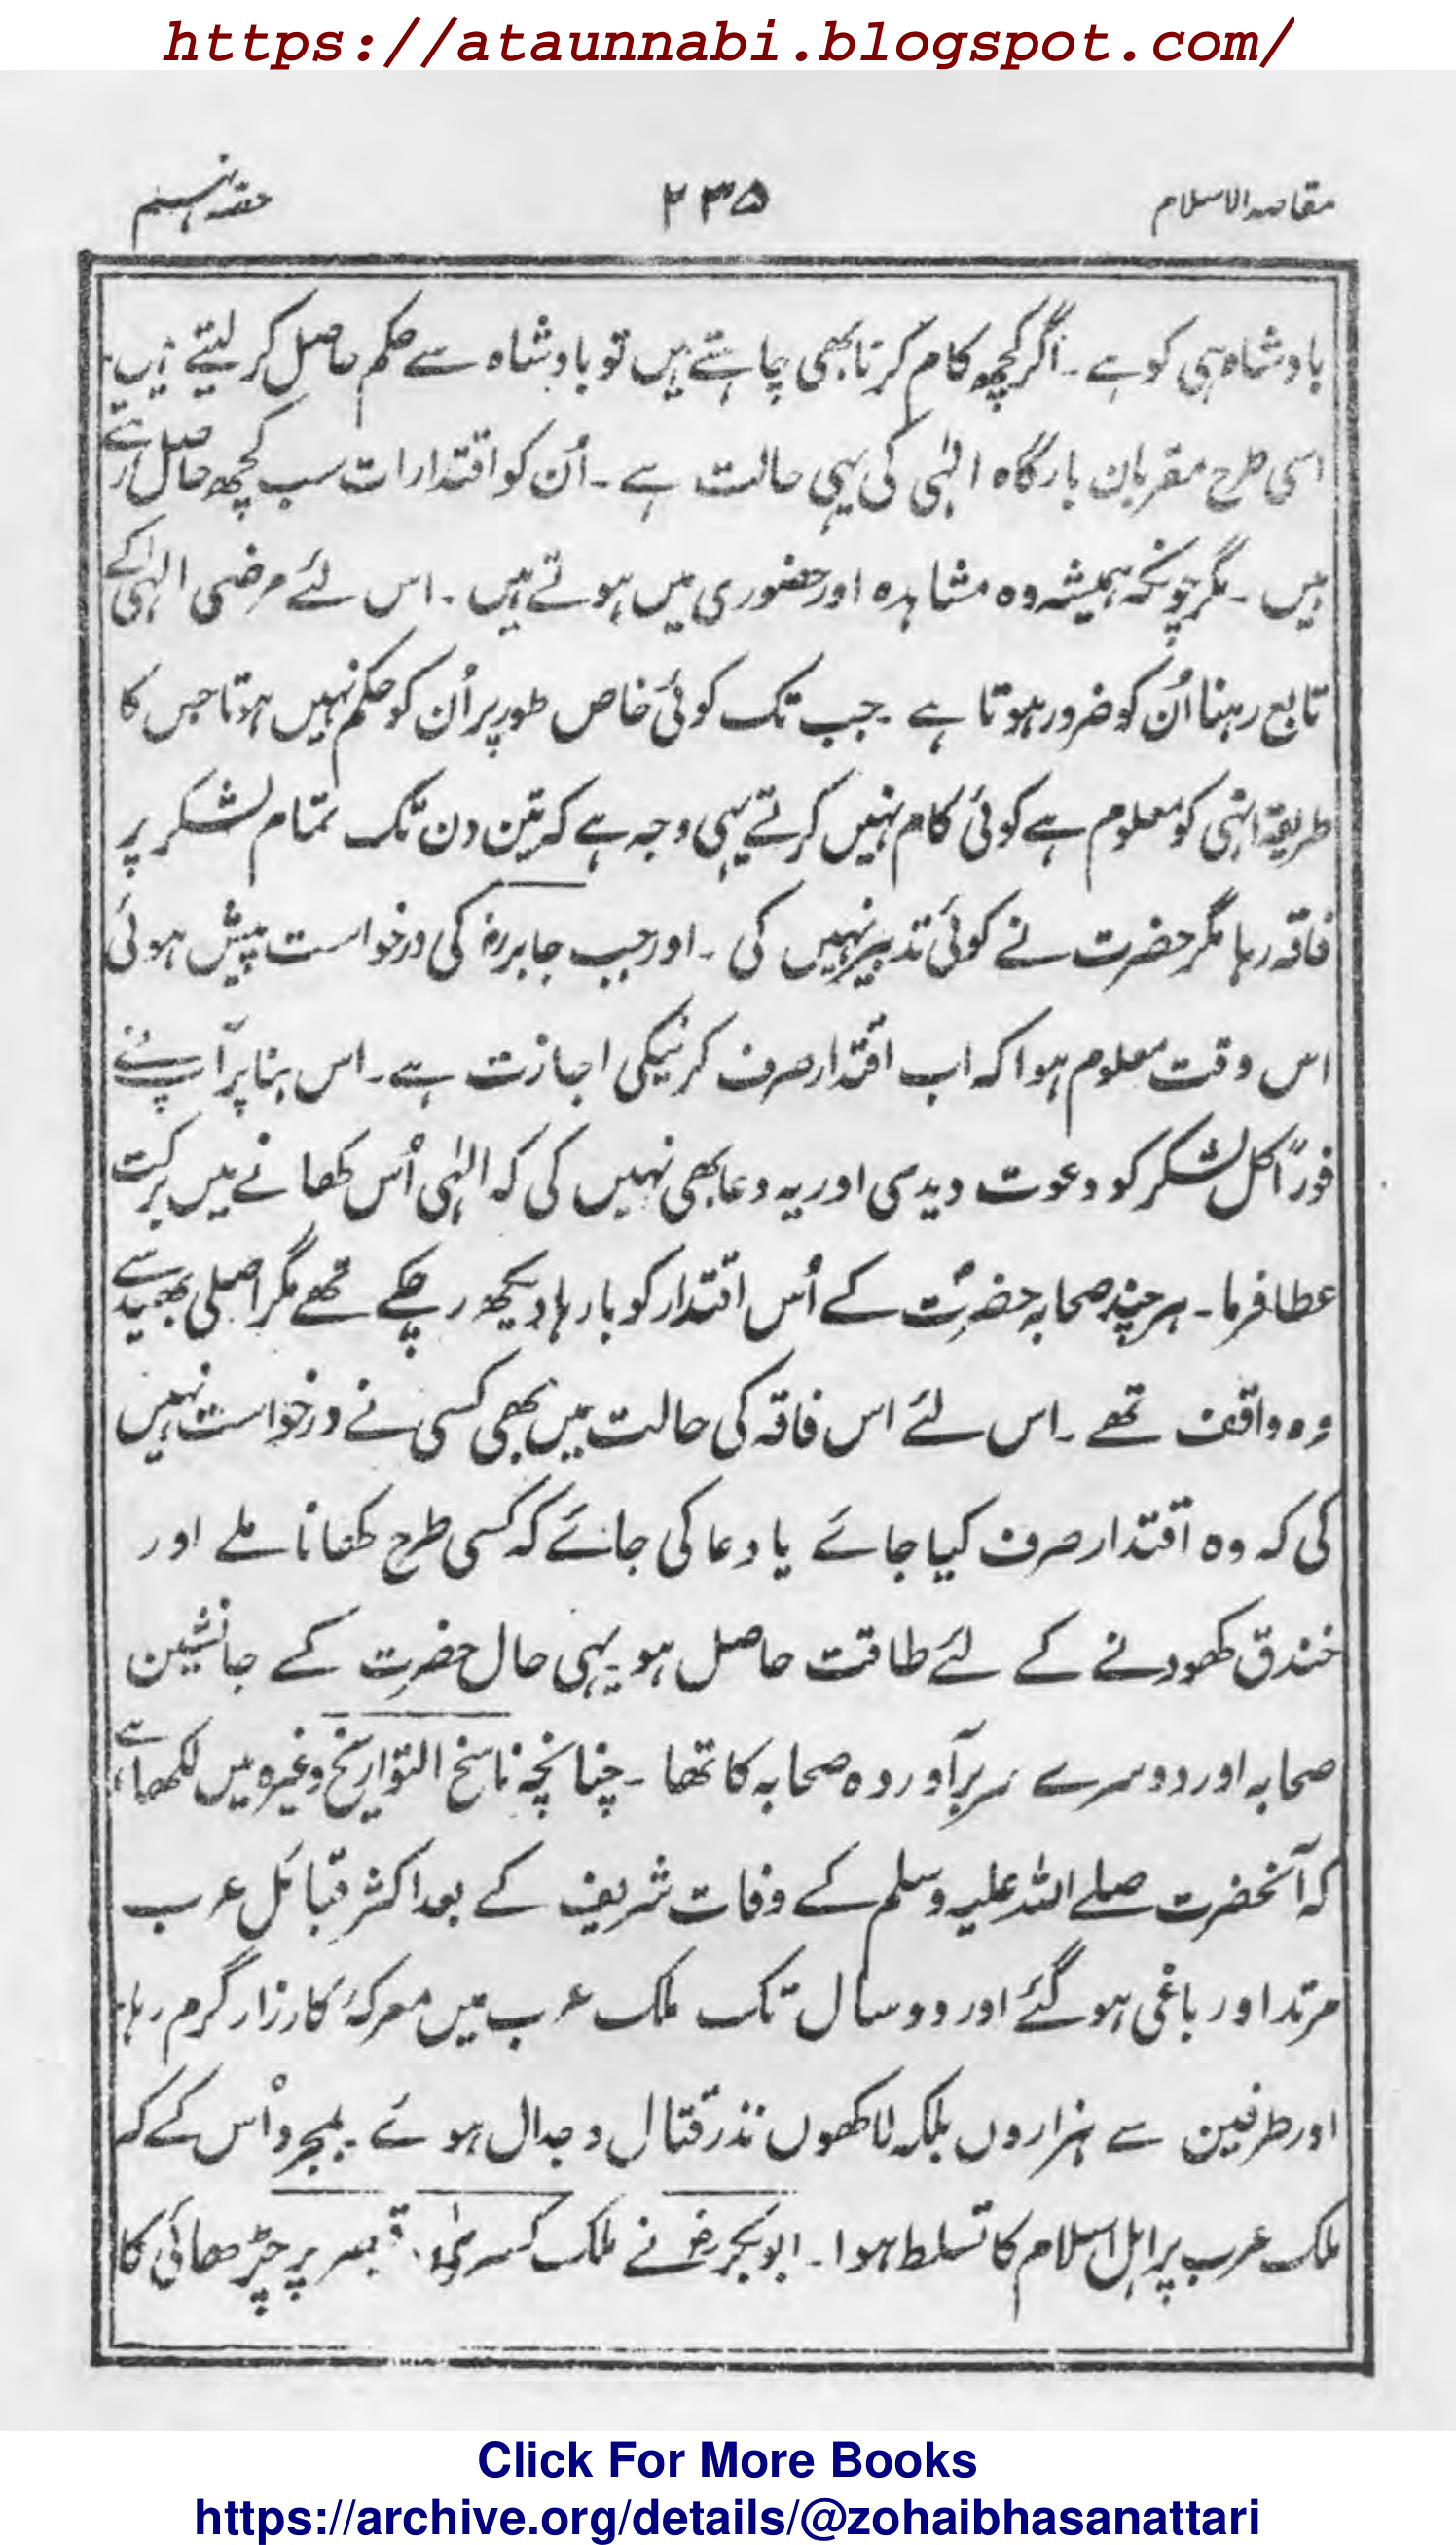 https://ataunnabi.blogspot.com/
مقاصد الاسلام
۲۳۵
حصہ نہم
بادشاہ ہی کو ہے ۔ اگر کچھ کام کرنا بھی چاہتے ہیں تو بادشاہ سے حکم حاصل کر لیتے ہیں۔
اسی طرح مقربان بارگاہ الٰہی کی یہی حالت ہے ۔ اُن کو اقتدارات سب کچھ حاصل رہتے
ہیں ۔ مگر چونکہ ہمیشہ وہ مشاہدہ اور حضوری میں ہوتے ہیں ۔ اس لئے مرضی الٰہی کے
تابع رہنا اُن کو ضرور ہوتا ہے ۔ جب تک کوئی خاص طور پر اُن کو حکم نہیں ہوتا جس کا
طریقہ انہی کو معلوم ہے کوئی کام نہیں کرتے یہی وجہ ہے کہ تین دن تک تمام لشکر پر
فاقہ رہا مگر حضرت نے کوئی تدبیر نہیں کی ۔ اور جب جابر رض کی درخواست پیش ہوئی
اس وقت معلوم ہوا کہ اب اقتدار صرف کرنیکی اجازت ہے ۔ اس بنا پر آپ نے
فوراً کل لشکر کو دعوت دیدی اور یہ دعا بھی نہیں کی کہ الٰہی اُس کھانے میں برکت
عطا فرما ۔ ہر چند صحابہ حضرت کے اُس اقتدار کو بارہا دیکھ رہے چکے تھے مگر اصلی بھید سے
وہ واقف تھے ۔ اس لئے اس فاقہ کی حالت میں بھی کسی نے درخواست نہیں
کی کہ وہ اقتدار صرف کیا جائے یا دعا کی جائے کہ کسی طرح کھانا ملے اور
خندق کھودنے کے لئے طاقت حاصل ہو یہی حال حضرت کے جانشین
صحابہ اور دوسرے سربرآوردہ صحابہ کا تھا ۔ چنانچہ ناسخ التواریخ وغیرہ میں لکھا ہے
کہ آنحضرت صلے اللہ علیہ وسلم کے وفات شریف کے بعد اکثر قبائل عرب
مرتد اور باغی ہو گئے اور دو سال تک ملک عرب میں معرکۂ کارزار گرم رہا۔
اور طرفین سے ہزاروں بلکہ لاکھوں نذر قتال و جدال ہوئے ۔ بمجرد اُس کے کہ
ملک عرب پر اہل اسلام کا تسلط ہوا ۔ ابوبکر رض نے ملک کسریٰ و قیصر پر چڑھائی کا
Click For More Books
https://archive.org/details/@zohaibhasanattari